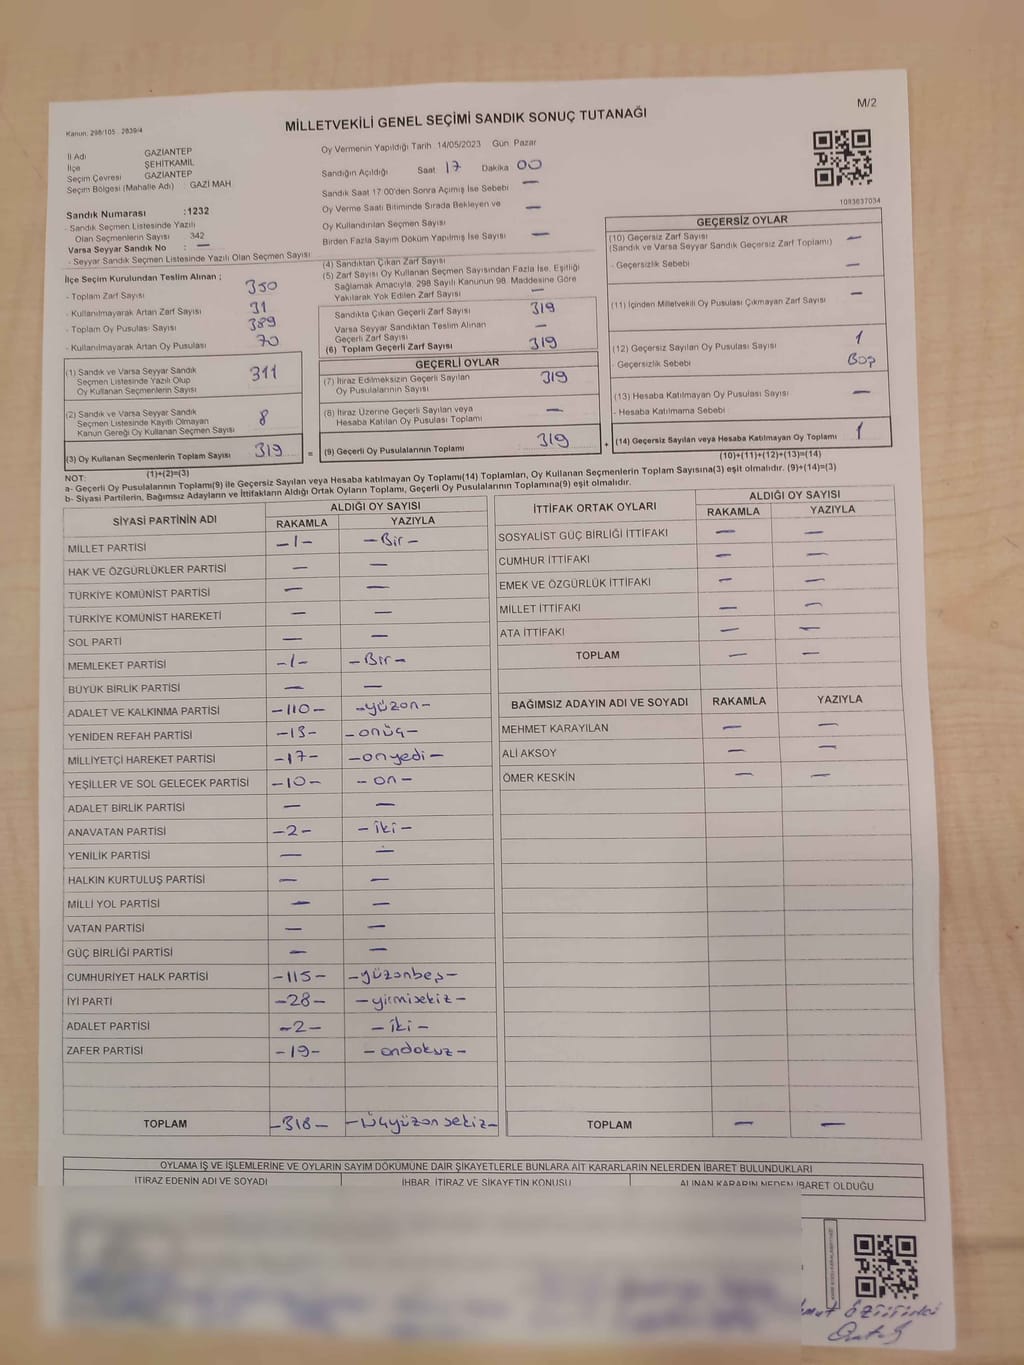 M/2
Kanun: 298/105 2839/4
MİLLETVEKİLİ GENEL SEÇİMİ SANDIK SONUÇ TUTANAĞI
İl Adı GAZİANTEP
İlçe ŞEHİTKAMİL
Seçim Çevresi GAZİANTEP
Seçim Bölgesi (Mahalle Adı) : GAZİ MAH.
Sandık Numarası :1232
- Sandık Seçmen Listesinde Yazılı
Olan Seçmenlerin Sayısı 342
Varsa Seyyar Sandık No : —
- Seyyar Sandık Seçmen Listesinde Yazılı Olan Seçmen Sayısı
İlçe Seçim Kurulundan Teslim Alınan ;
- Toplam Zarf Sayısı 350
- Kullanılmayarak Artan Zarf Sayısı 31
- Toplam Oy Pusulası Sayısı 389
- Kullanılmayarak Artan Oy Pusulası 70
(1) Sandık ve Varsa Seyyar Sandık
Seçmen Listesinde Yazılı Olup
Oy Kullanan Seçmenlerin Sayısı 311
(2) Sandık ve Varsa Seyyar Sandık
Seçmen Listesinde Kayıtlı Olmayan
Kanun Gereği Oy Kullanan Seçmen Sayısı 8
(3) Oy Kullanan Seçmenlerin Toplam Sayısı 319
(1)+(2)=(3)
Oy Vermenin Yapıldığı Tarih 14/05/2023 Gün Pazar
Sandığın Açıldığı Saat 17 Dakika 00
Sandık Saat 17:00'den Sonra Açımış İse Sebebi —
Oy Verme Saati Bitiminde Sırada Bekleyen ve
Oy Kullandırılan Seçmen Sayısı —
Birden Fazla Sayım Döküm Yapılmış İse Sayısı —
(4) Sandıktan Çıkan Zarf Sayısı
(5) Zarf Sayısı Oy Kullanan Seçmen Sayısından Fazla İse, Eşitliği
Sağlamak Amacıyla, 298 Sayılı Kanunun 98. Maddesine Göre
Yakılarak Yok Edilen Zarf Sayısı —
Sandıkta Çıkan Geçerli Zarf Sayısı 319
Varsa Seyyar Sandıktan Teslim Alınan
Geçerli Zarf Sayısı —
(6) Toplam Geçerli Zarf Sayısı 319
GEÇERLİ OYLAR
(7) İtiraz Edilmeksizin Geçerli Sayılan
Oy Pusulalarının Sayısı 319
(8) İtiraz Üzerine Geçerli Sayılan veya
Hesaba Katılan Oy Pusulası Toplamı —
= (9) Geçerli Oy Pusulalarının Toplamı 319 +
1083637034
GEÇERSİZ OYLAR
(10) Geçersiz Zarf Sayısı
(Sandık ve Varsa Seyyar Sandık Geçersiz Zarf Toplamı) —
- Geçersizlik Sebebi —
(11) İçinden Milletvekili Oy Pusulası Çıkmayan Zarf Sayısı —
(12) Geçersiz Sayılan Oy Pusulası Sayısı 1
- Geçersizlik Sebebi Boş
(13) Hesaba Katılmayan Oy Pusulası Sayısı —
- Hesaba Katılmama Sebebi
(14) Geçersiz Sayılan veya Hesaba Katılmayan Oy Toplamı 1
(10)+(11)+(12)+(13)=(14)
NOT:
a- Geçerli Oy Pusulalarının Toplamı(9) ile Geçersiz Sayılan veya Hesaba katılmayan Oy Toplamı(14) Toplamları, Oy Kullanan Seçmenlerin Toplam Sayısına(3) eşit olmalıdır. (9)+(14)=(3)
b- Siyasi Partilerin, Bağımsız Adayların ve İttifakların Aldığı Ortak Oyların Toplamı, Geçerli Oy Pusulalarının Toplamına(9) eşit olmalıdır.
SİYASİ PARTİNİN ADI ALDIĞI OY SAYISI
RAKAMLA YAZIYLA
MİLLET PARTİSİ -1- -Bir-
HAK VE ÖZGÜRLÜKLER PARTİSİ — —
TÜRKİYE KOMÜNİST PARTİSİ — —
TÜRKİYE KOMÜNİST HAREKETİ — —
SOL PARTİ — —
MEMLEKET PARTİSİ -1- -Bir-
BÜYÜK BİRLİK PARTİSİ — —
ADALET VE KALKINMA PARTİSİ -110- -yüzon-
YENİDEN REFAH PARTİSİ -13- -onüç-
MİLLİYETÇİ HAREKET PARTİSİ -17- -onyedi-
YEŞİLLER VE SOL GELECEK PARTİSİ -10- -on-
ADALET BİRLİK PARTİSİ — —
ANAVATAN PARTİSİ -2- -iki-
YENİLİK PARTİSİ — —
HALKIN KURTULUŞ PARTİSİ — —
MİLLİ YOL PARTİSİ — —
VATAN PARTİSİ — —
GÜÇ BİRLİĞİ PARTİSİ — —
CUMHURİYET HALK PARTİSİ -115- -yüzonbeş-
İYİ PARTİ -28- -yirmisekiz-
ADALET PARTİSİ -2- -iki-
ZAFER PARTİSİ -19- -ondokuz-
TOPLAM -318- -üçyüzonsekiz-
İTTİFAK ORTAK OYLARI ALDIĞI OY SAYISI
RAKAMLA YAZIYLA
SOSYALİST GÜÇ BİRLİĞİ İTTİFAKI — —
CUMHUR İTTİFAKI — —
EMEK VE ÖZGÜRLÜK İTTİFAKI — —
MİLLET İTTİFAKI — —
ATA İTTİFAKI — —
TOPLAM — —
BAĞIMSIZ ADAYIN ADI VE SOYADI RAKAMLA YAZIYLA
MEHMET KARAYILAN — —
ALİ AKSOY — —
ÖMER KESKİN — —
TOPLAM — —
OYLAMA İŞ VE İŞLEMLERİNE VE OYLARIN SAYIM DÖKÜMÜNE DAİR ŞİKAYETLERLE BUNLARA AİT KARARLARIN NELERDEN İBARET BULUNDUKLARI
İTİRAZ EDENİN ADI VE SOYADI İHBAR, İTİRAZ VE ŞİKAYETİN KONUSU ALINAN KARARIN NEDEN İBARET OLDUĞU